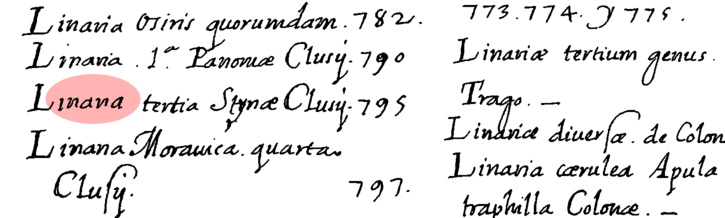 Linaria Osiris quorumdam. 782.
Linaria. 1ª Panoniæ Clusij. 790
Linaria tertia Styriæ Clusij. 795
Linaria Moravica. quarta
Clusij. 797.
773. 774. y 775.
Linariæ tertium genus.
Trago. —
Linariæ diuersæ. de Colon
Linaria cærulea Apula
traphilla Colonæ. —